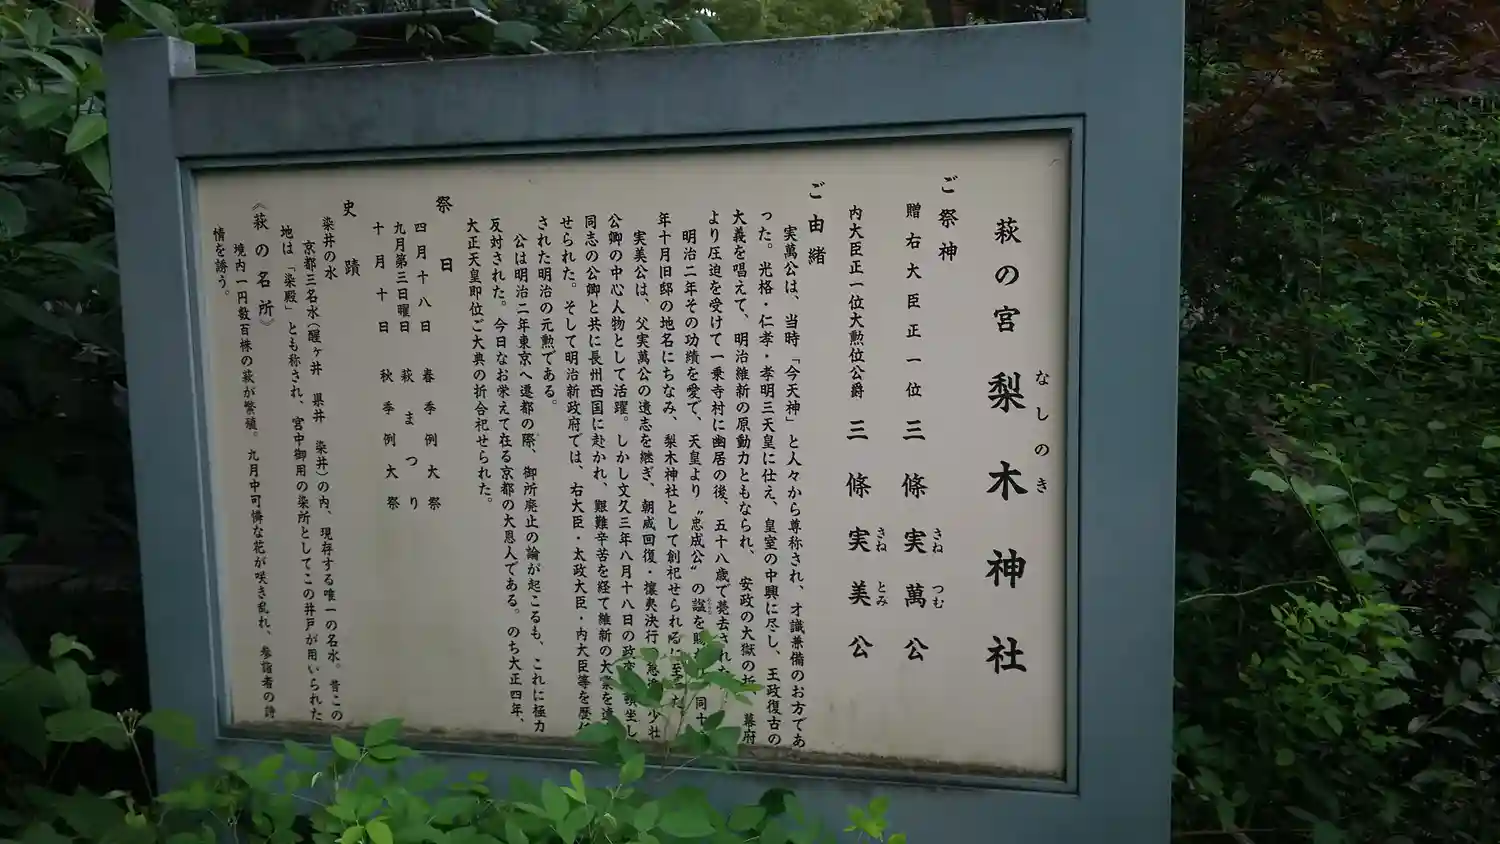 萩の宮 梨木神社
なしのき
ご祭神
贈右大臣正一位 三條実萬公
さね つむ
内大臣正一位大勲位公爵 三條実美公
さね とみ
ご由緒
実萬公は、当時「今天神」と人々から尊称され、才識兼備のお方であ
った。光格・仁孝・孝明三天皇に仕え、皇室の中興に尽し、王政復古の
大義を唱えて、明治維新の原動力ともなられ、安政の大獄の折 幕府
より圧迫を受けて一乗寺村に幽居の後、五十八歳で薨去され
明治二年その功績を愛で、天皇より〝忠成公〟の諡を 同十
年十月旧邸の地名にちなみ、梨木神社として創祀せられるに至 た。
実美公は、父実萬公の遺志を継ぎ、朝威回復・攘夷決行 少壮
公卿の中心人物として活躍。しかし文久三年八月十八日の政 坐し
同志の公卿と共に長州西国に赴かれ、艱難辛苦を経て維新の大業を
せられた。そして明治新政府では、右大臣・太政大臣・内大臣等を歴
された明治の元勲である。
公は明治二年東京へ遷都の際、御所廃止の論が起こるも、これに極力
反対された。今日なお栄えて在る京都の大恩人である。のち大正四年、
大正天皇即位ご大典の折合祀せられた。
祭日
四月十八日 春季例大祭
九月第三日曜日 萩まつり
十月十日 秋季例大祭
史蹟
染井の水
京都三名水(醒ヶ井 県井 染井)の内、現存する唯一の名水。昔この
地は「染殿」とも称され、宮中御用の染所としてこの井戸が用いられた
《萩の名所》
境内一円数百株の萩が繁殖。九月中可憐な花が咲き乱れ、参詣者の詩
情を誘う。